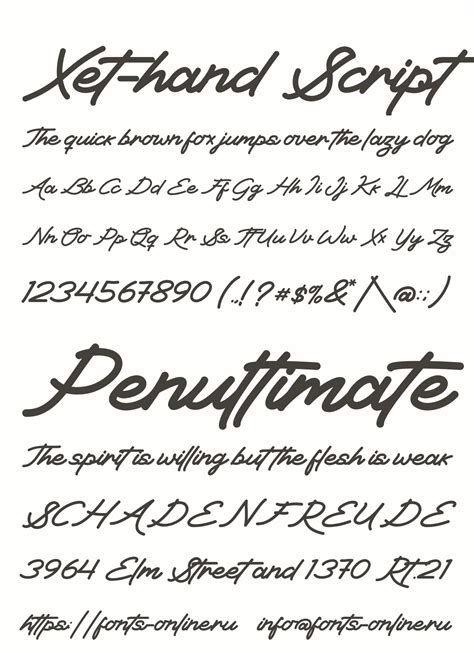 Xet-hand Script
The quick brown fox jumps over the lazy dog
Aa Bb Cc Dd Ee Ff Gg Hh Ii Jj Kk Ll Mm
Nn Oo Pp Qq Rr Ss Tt Uu Vv Ww Xx Yy Zz
1234567890 (.,!?#$%&*/\@:;)
Penultimate
The spirit is willing but the flesh is weak
SCHADENFREUDE
3964 Elm Street and 1370 Rt.21
https://fonts-online.ru info@fonts-online.ru